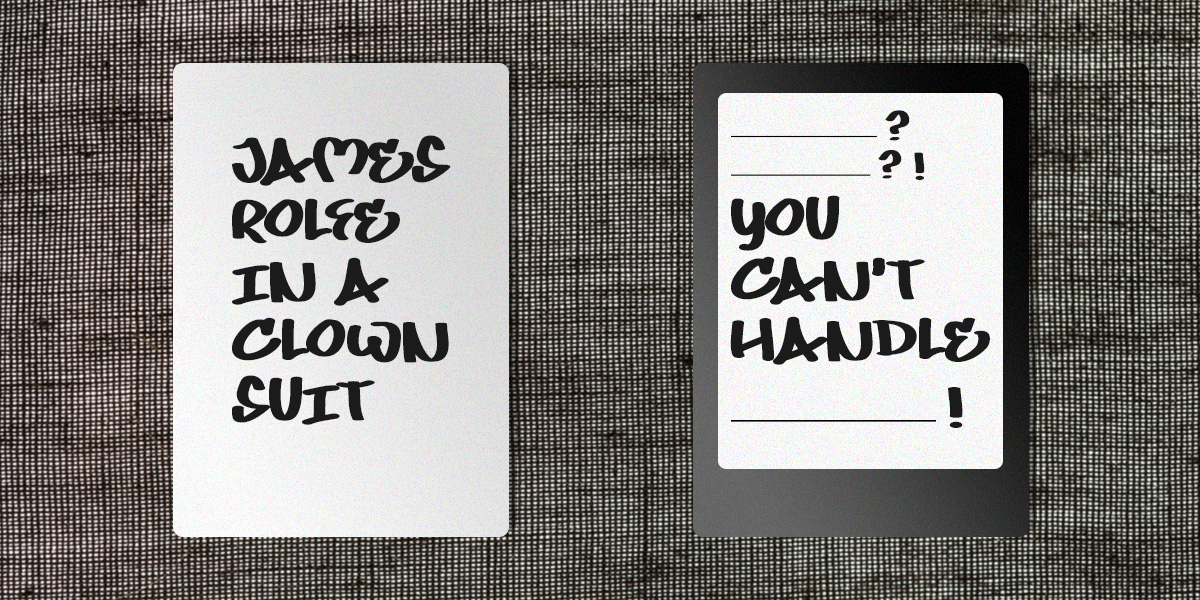 JAMES
ROLFE
IN A
CLOWN
SUIT
______ ?
______ ? !
YOU
CAN'T
HANDLE
________ !